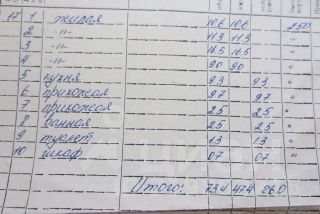 17 1 жилая 10.6 10.6 250
2 -"- 11.3 11.3 "
3 -"- 16.5 16.5 "
4 -"- 9.0 9.0 "
5 кухня 9.3 9.3 "
6 прихожая 9.7 9.7 "
7 прихожая 2.5 2.5 "
8 ванная 2.5 2.5 "
9 туалет 1.3 1.3 "
10 шкаф 0.7 0.7 "
Итого: 73.4 47.4 26.0